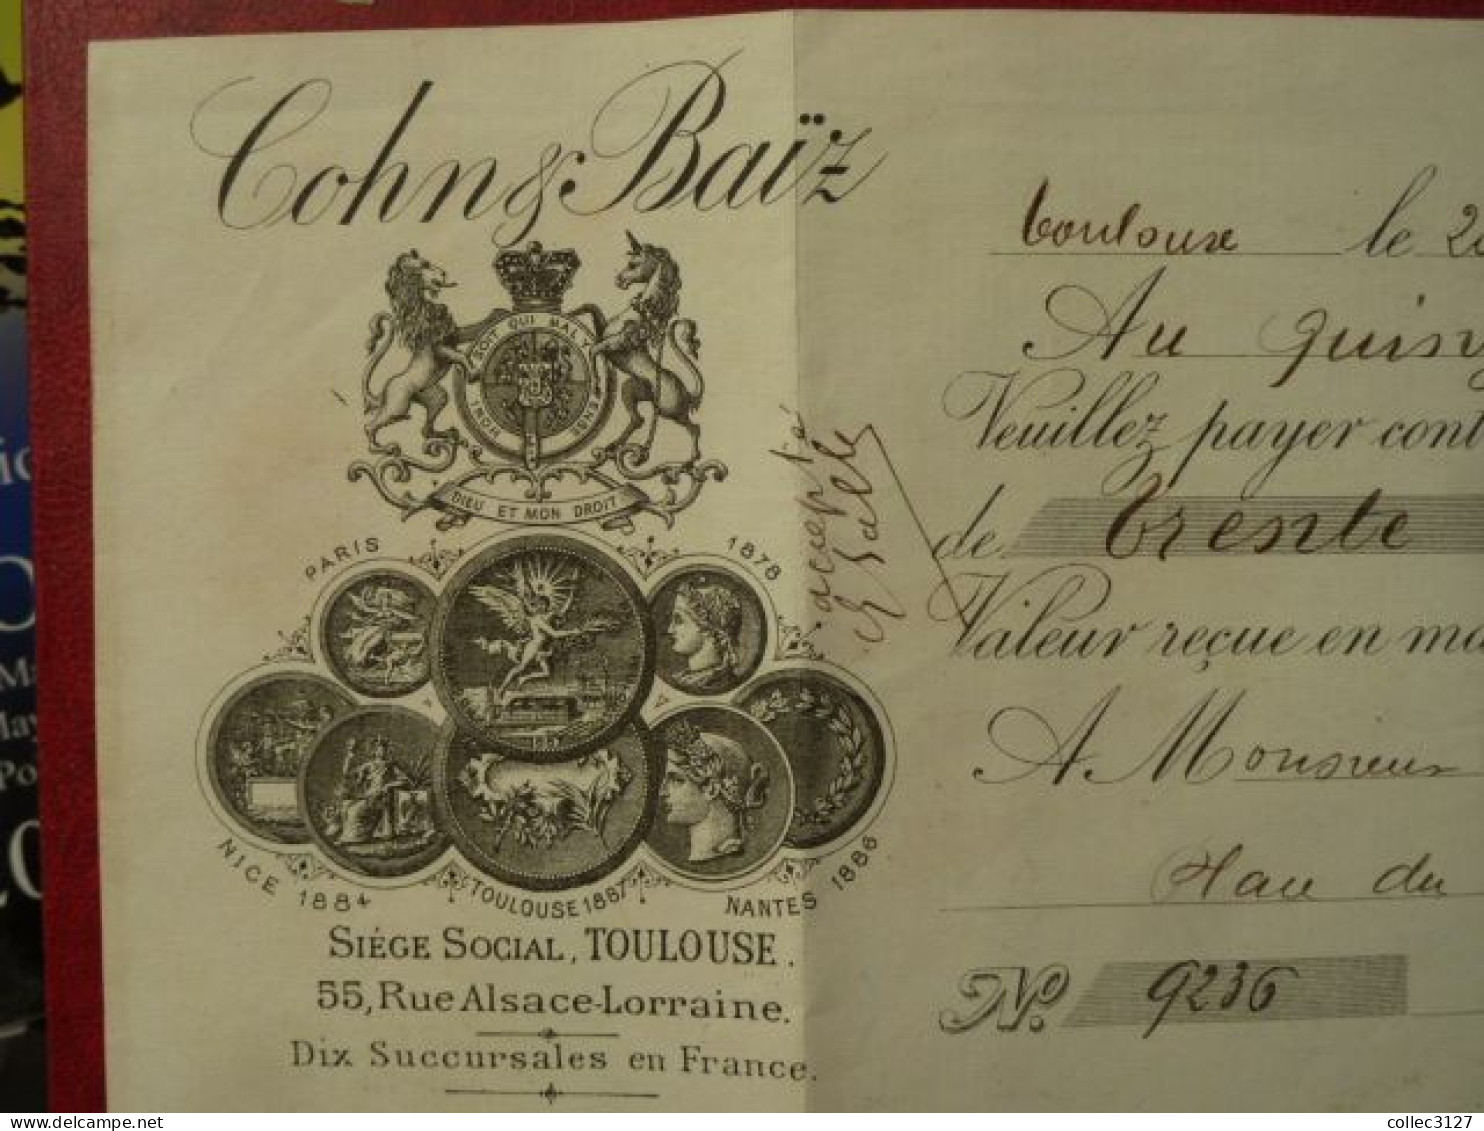 Cohn & Baïz
HONI SOIT QUI MAL Y PENSE
DIEU ET MON DROIT
PARIS 1878
1867
NICE 1884
TOULOUSE 1887
NANTES 1886
SIÉGE SOCIAL, TOULOUSE.
55, Rue Alsace-Lorraine.
Dix Succursales en France.
accepté
Toulouse le 20
Au quinz
Veuillez payer cont
de Trente
Valeur reçue en ma
A Monsieur
du
No. 9236
collec3127